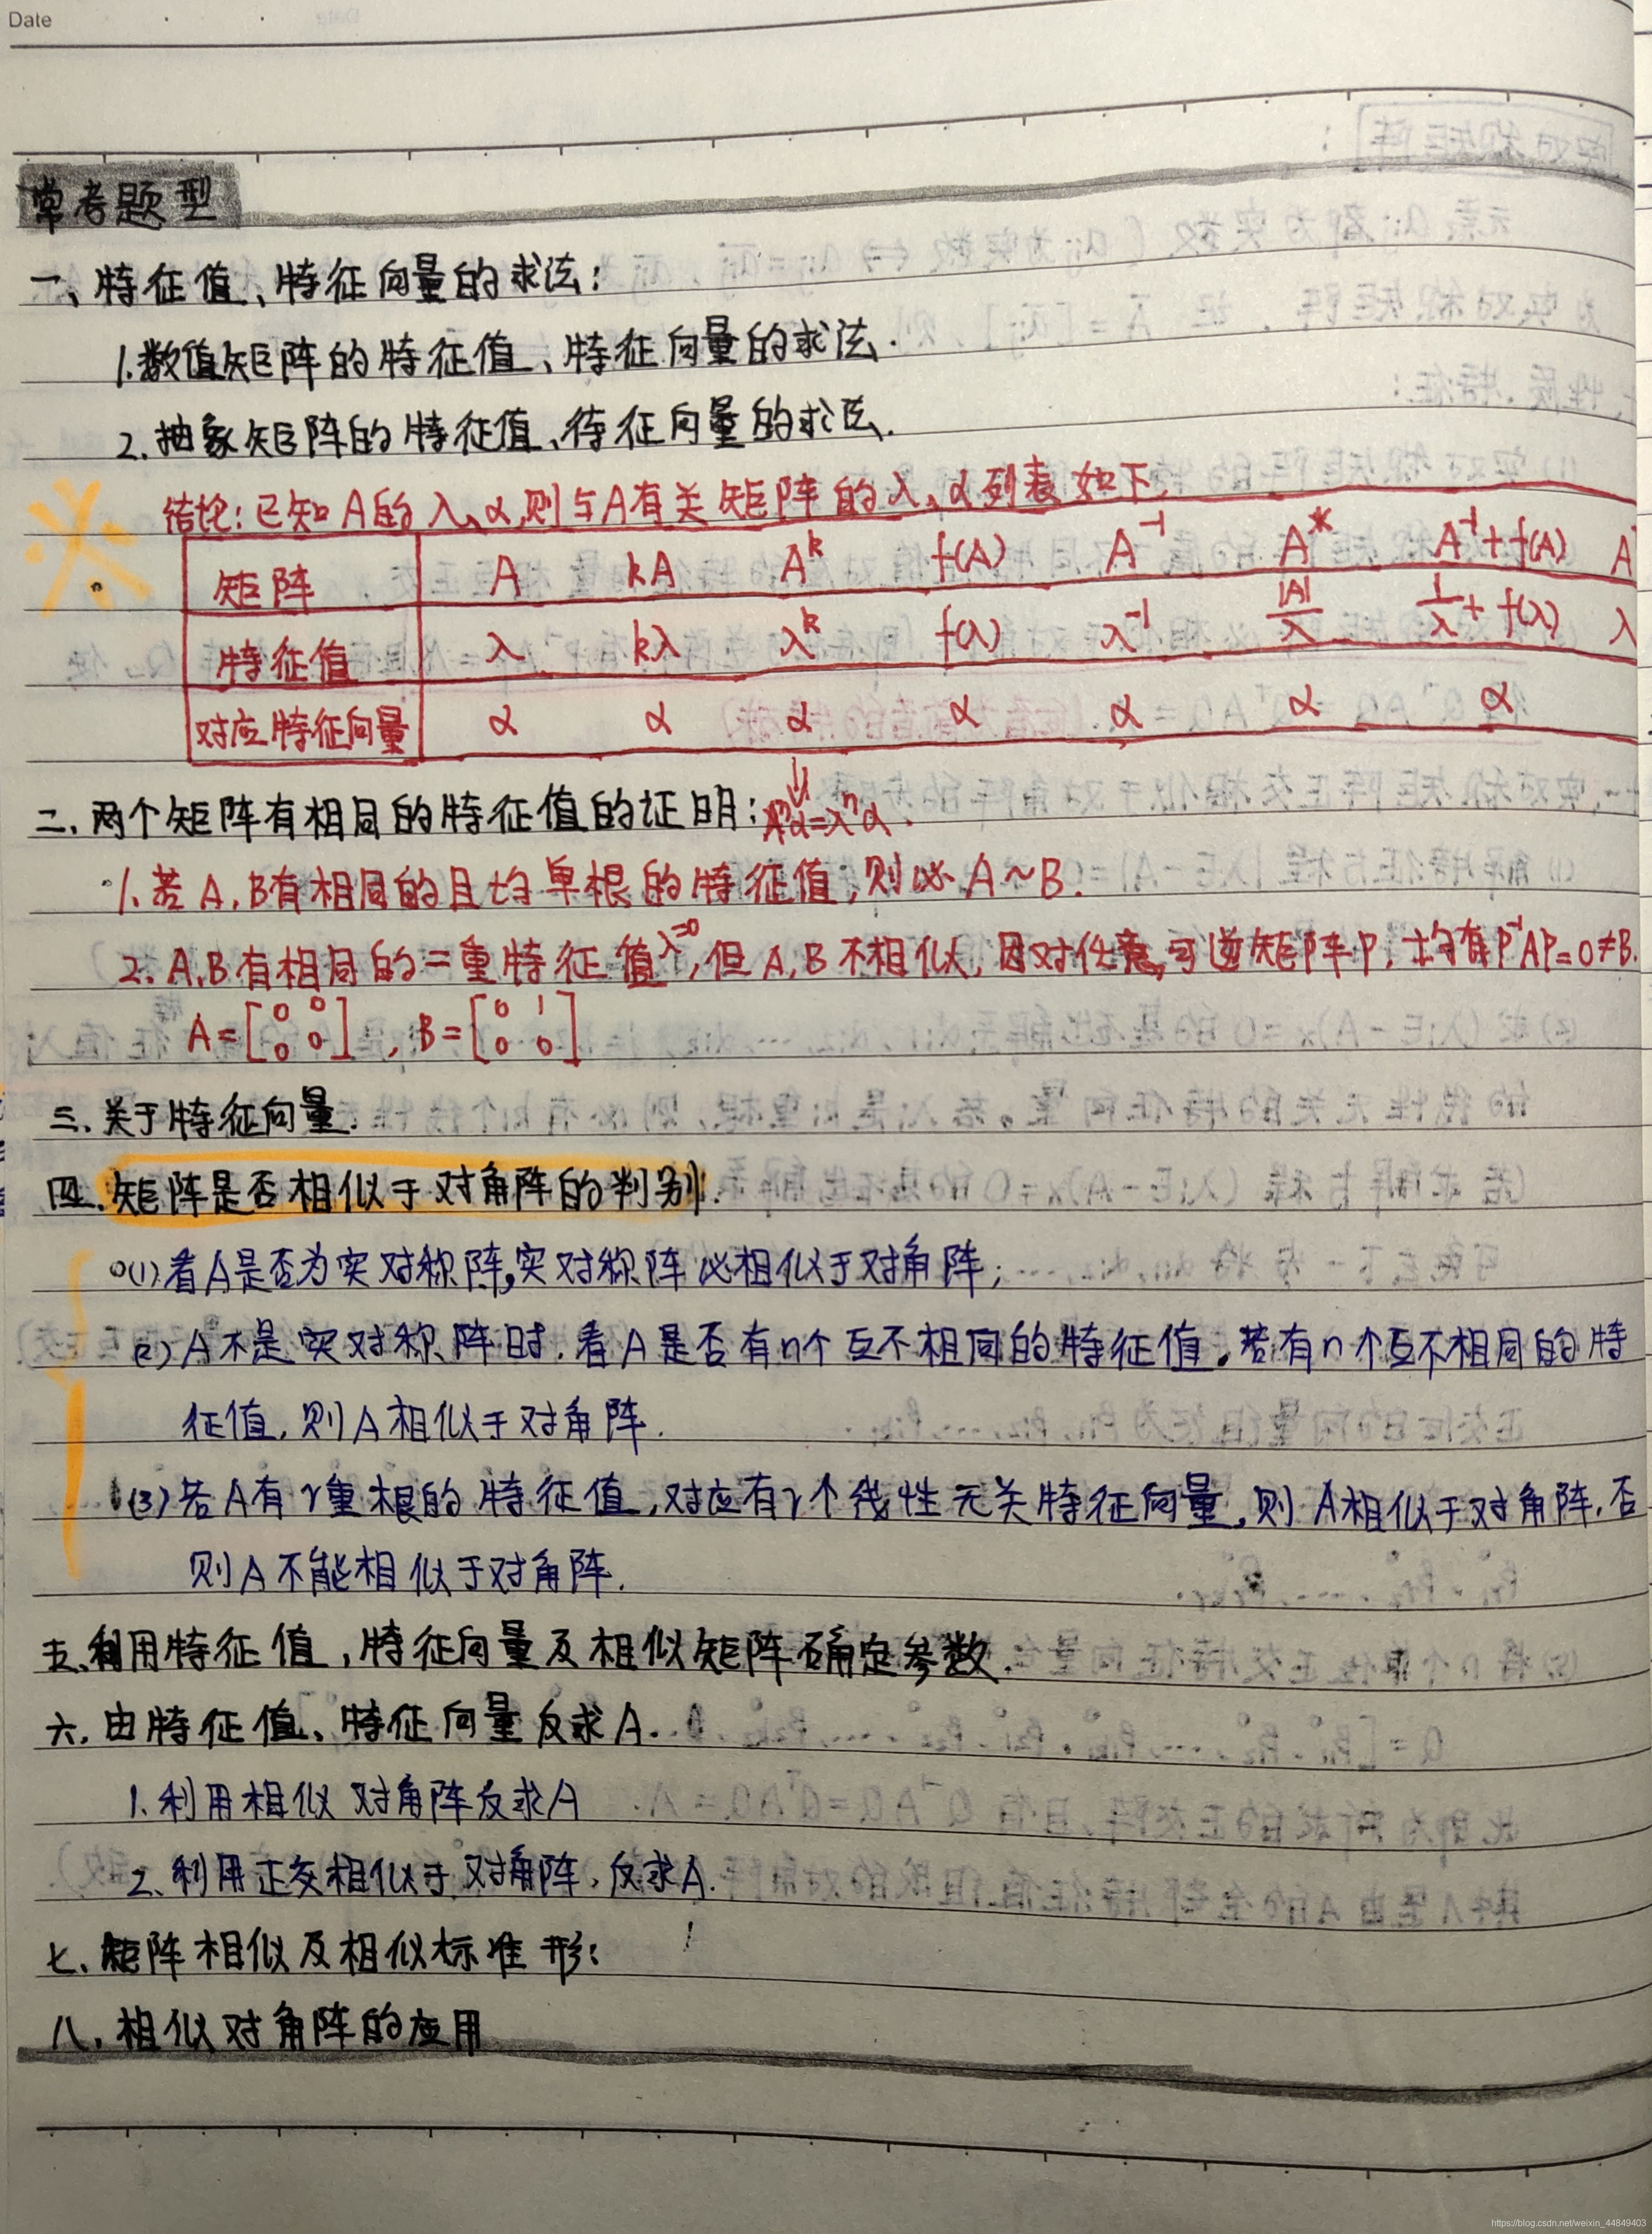 Date
常考题型
一、特征值、特征向量的求法：
1.数值矩阵的特征值、特征向量的求法.
2.抽象矩阵的特征值、特征向量的求法.
结论：已知A的λ、α，则与A有关矩阵的λ、α列表如下.
矩阵 A kA A^k f(A) A^-1 A^* A^-1+f(A) A
特征值 λ kλ λ^k f(λ) λ^-1 |A|/λ 1/λ+f(λ) λ
对应特征向量 α α α α α α α
二、两个矩阵有相同的特征值的证明： A^nα=λ^nα.
1.若A,B有相同的且均单根的特征值，则必A~B.
2.A,B有相同的二重特征值λ=0,但A,B不相似,因对任意可逆矩阵P,均有P^-1AP=0≠B.
A=[0 0 0 0], B=[0 1 0 0]
三.关于特征向量.
四.矩阵是否相似于对角阵的判别.
(1)看A是否为实对称阵,实对称阵必相似于对角阵;
(2)A不是实对称阵时.看A是否有n个互不相同的特征值.若有n个互不相同的特
征值,则A相似于对角阵.
(3)若A有r重根的特征值,对应有r个线性无关特征向量,则A相似于对角阵.否
则A不能相似于对角阵.
五.利用特征值,特征向量及相似矩阵确定参数.
六.由特征值、特征向量反求A.
1.利用相似对角阵反求A
2.利用正交相似于对角阵,反求A.
七.矩阵相似及相似标准形:
八.相似对角阵的应用
https://blog.csdn.net/weixin_44849403